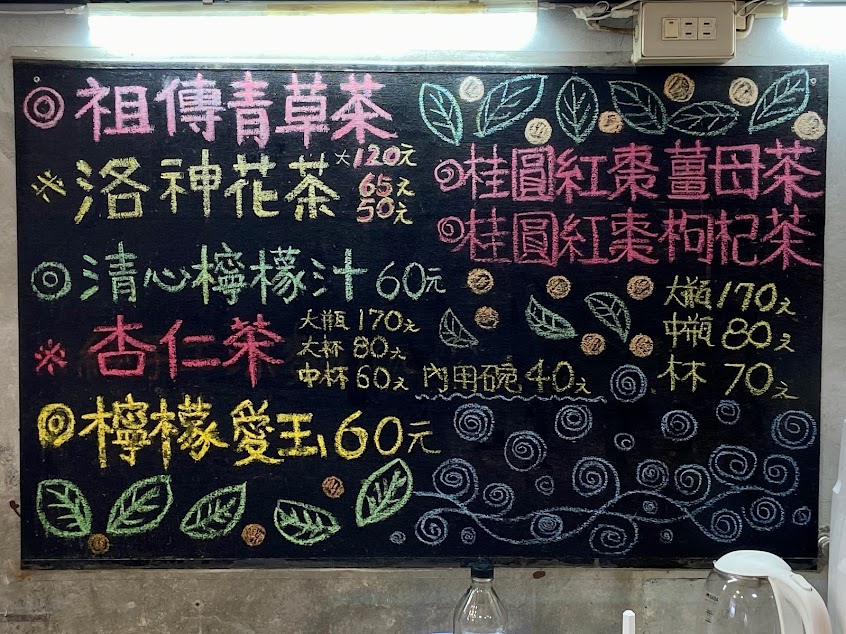 ◎祖傳青草茶
※洛神花茶 大120元
65元
50元
◎清心檸檬汁 60元
※杏仁茶 大瓶170元
大杯80元
中杯60元 內用碗40元
◎檸檬愛玉 60元
◎桂圓紅棗薑母茶
◎桂圓紅棗枸杞茶
大瓶170元
中瓶80元
杯70元